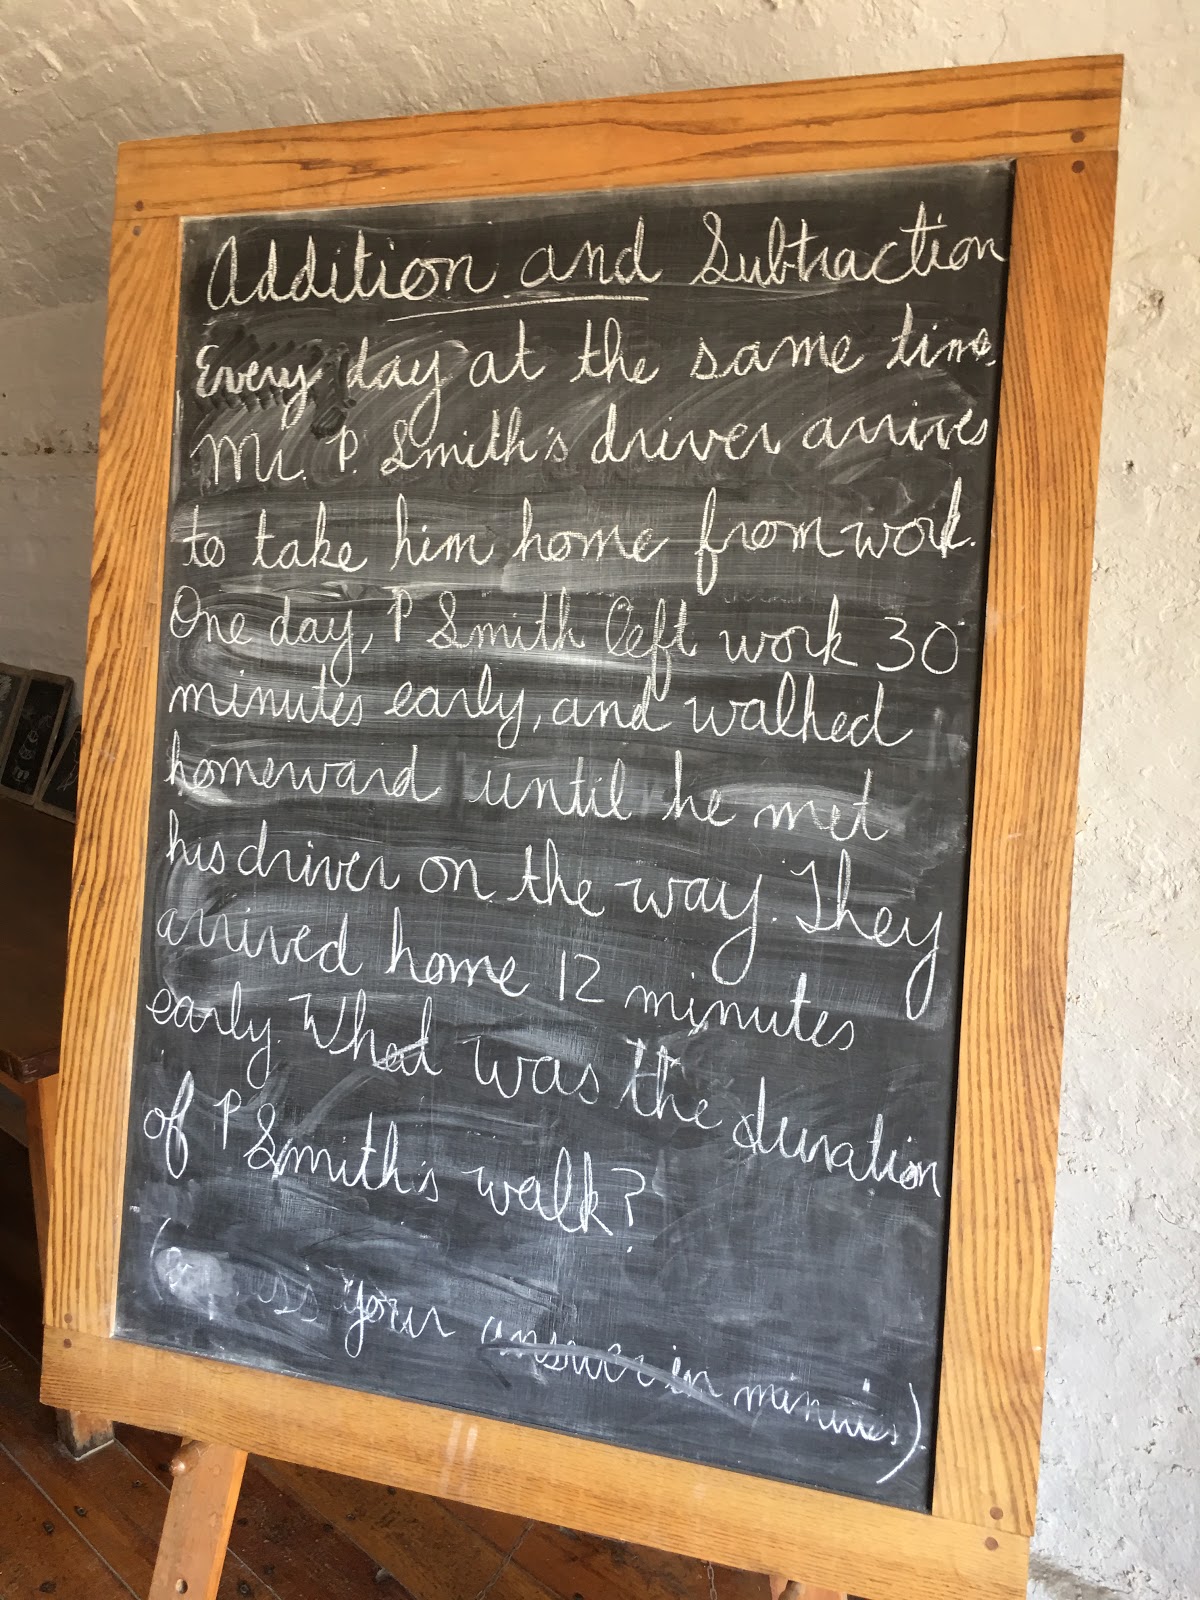 Addition and Subtraction
Every day at the same time
Mr. P. Smith's driver arrives
to take him home from work.
One day, P Smith left work 30
minutes early, and walked
homeward until he met
his driver on the way. They
arrived home 12 minutes
early. What was the duration
of P Smith's walk?
( your answer in minutes).